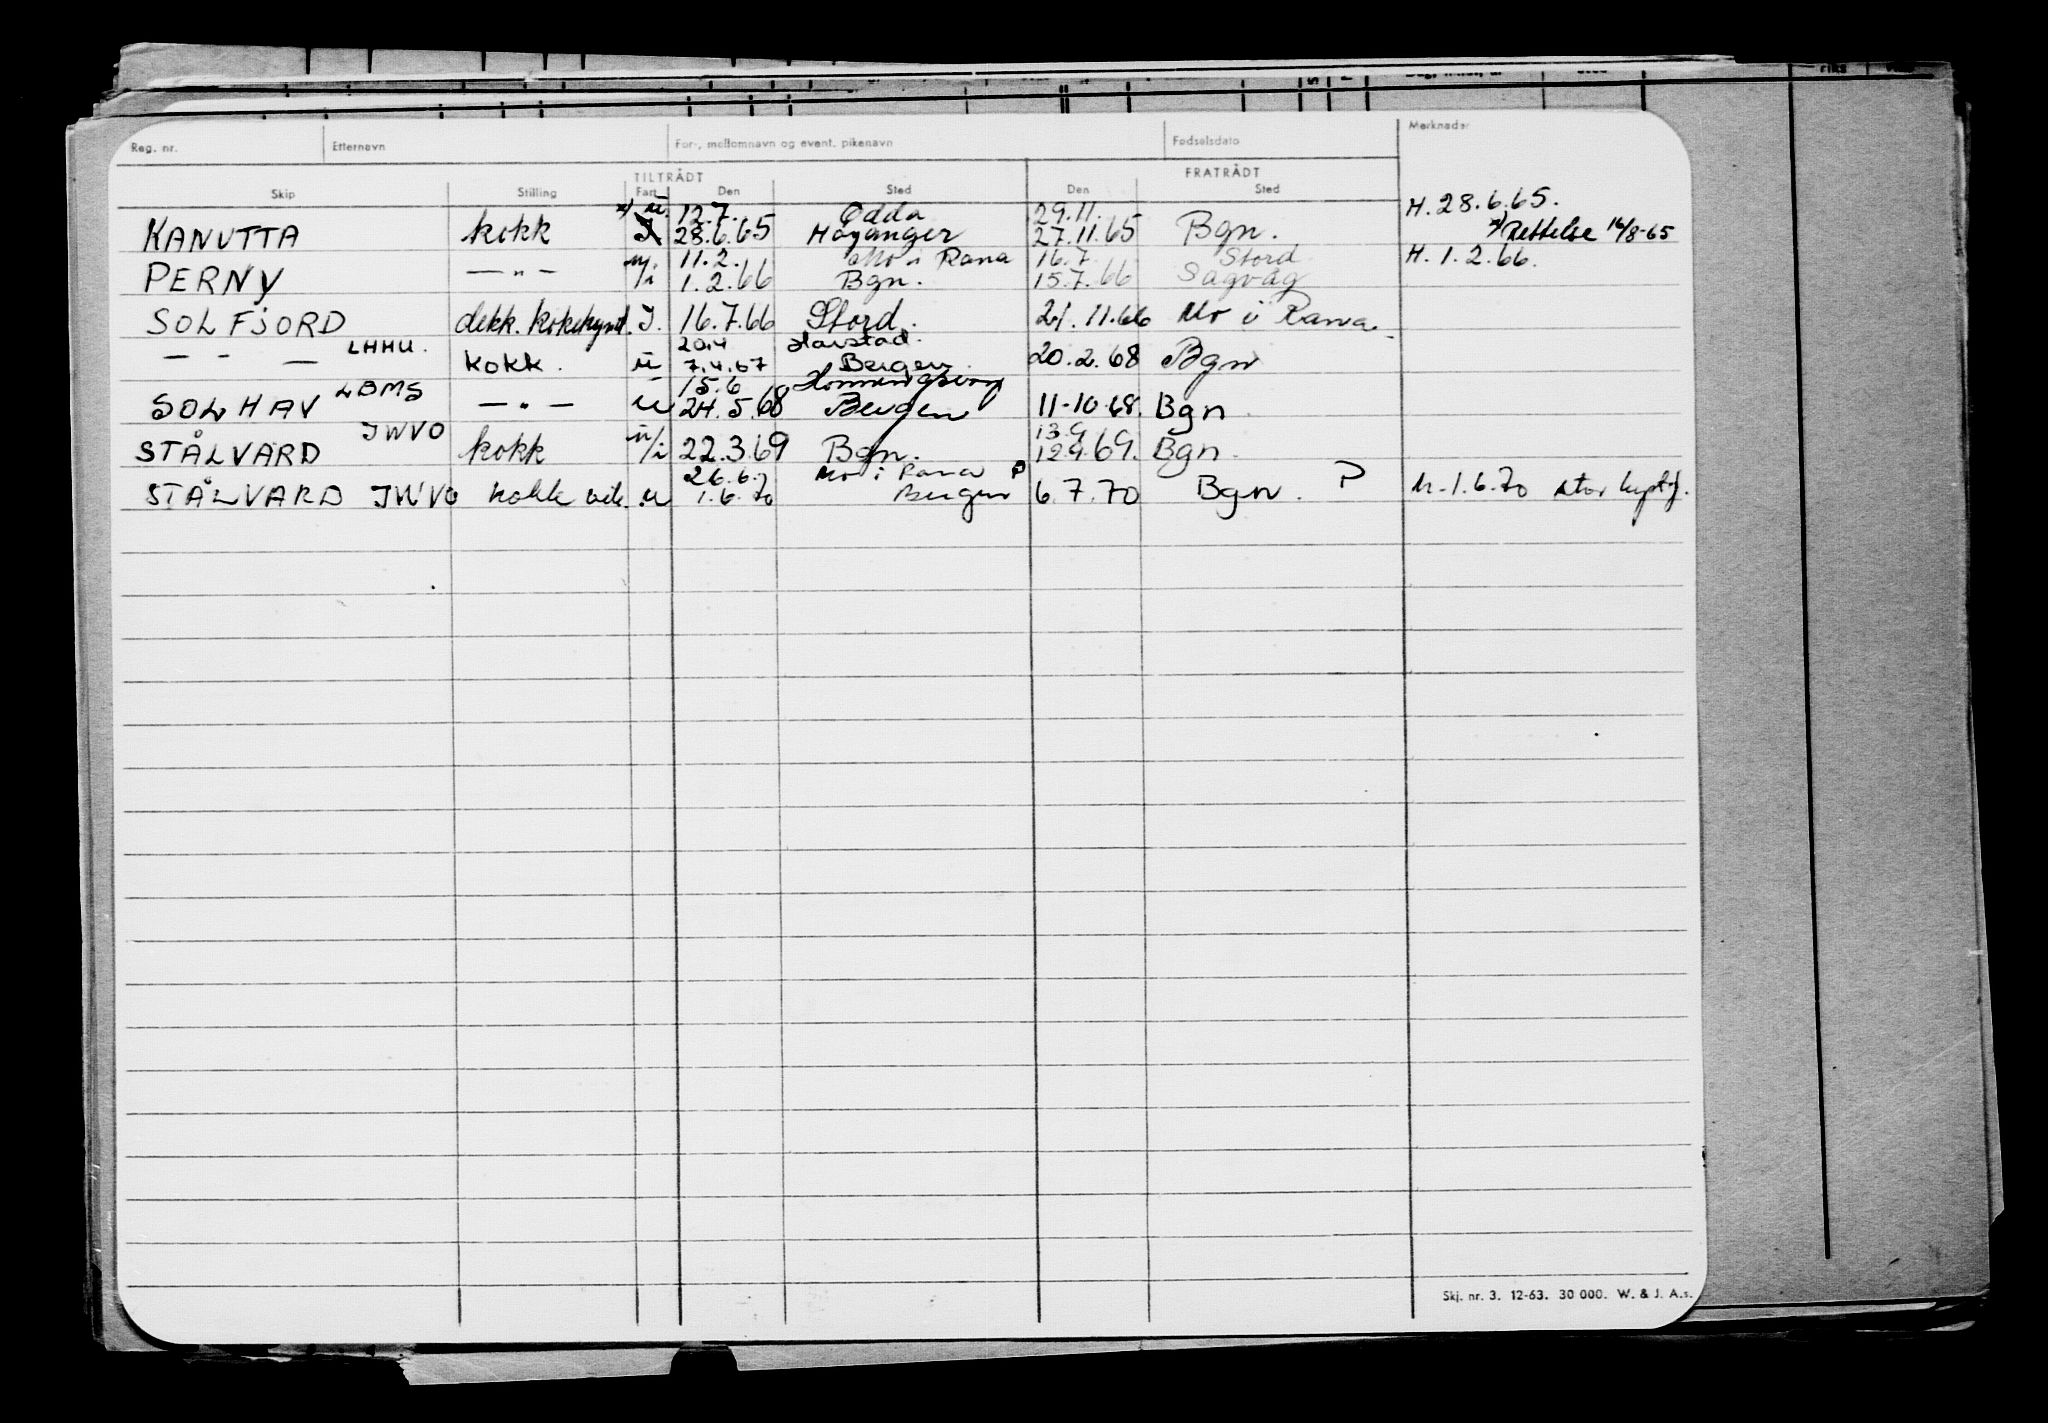 Reg. nr. Etternavn For-, mellomnavn og event. pikenavn Fødselsdato Merknader
TILTRÅDT FRATRÅDT
Skip Stilling Fart Den Sted Den Sted
x) u. 12.7. Odda 29.11. H. 28.6.65.
KANUTTA kokk I 28.6.65 Høyanger 27.11.65 Bgn. x) Rettelse 16/8-65
11.2. Mo i Rana 16.7 Stord H. 1.2.66.
PERNY — " — u/i 1.2.66 Bgn. 15.7.66 Sagvåg
SOLFJORD dekk. kokekynd. I. 16.7.66 Stord. 21.11.66 Mo i Rana
20.4 Harstad.
— - — LHHU. kokk. u 7.4.67 Bergen 20.2.68 Bgn
15.6 Honningsvåg
SOLHAV LBMS — " — u 24.5.68 Bergen 11-10-68. Bgn
JWVO 13.9
STÅLVARD kokk u/i 22.3.69 Bgn. 12.9.69. Bgn.
26.6.7 Mo i Rana P
STÅLVARD JWVO kokk vik. u 1.6.70 Bergen 6.7.70 Bgn. P h. 1.6.70 stor
Skj. nr. 3. 12-63. 30 000. W. & J. A.s.